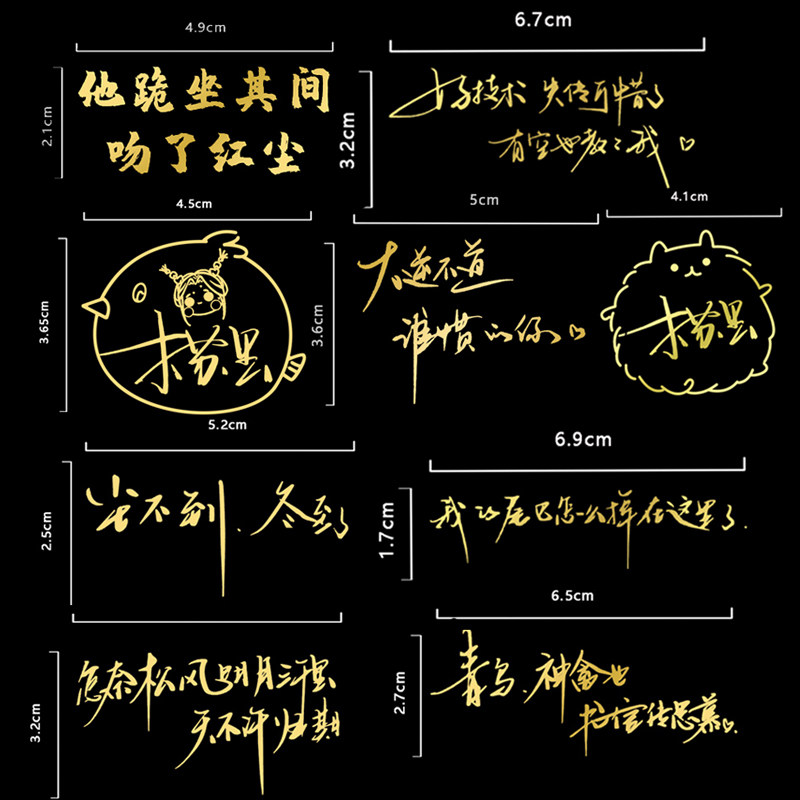 4.9cm
6.7cm
2.1cm
他跪坐其间
吻了红尘
3.2cm
好技术 失传可惜了
有空也教々我♡
4.5cm
5cm
4.1cm
3.65cm
木苏里
3.6cm
大逆不道
谁惯的你♡
木苏里
5.2cm
6.9cm
2.5cm
尘不到.冬至了
1.7cm
我的尾巴怎么掉在这里了.
6.5cm
3.2cm
怎奈松风明月三千里
天不许归期
2.7cm
青鸟.神禽也
书信传思慕♡.